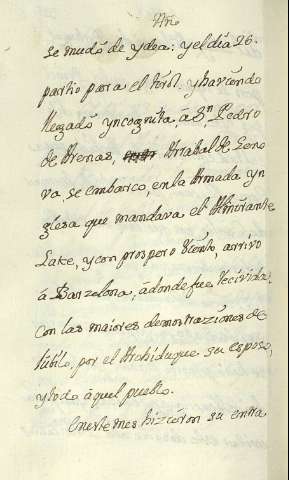 Año
se mudó de ydea: y el día 26.
partio para el
llegado yncognita, á Sn. Pedro
de Arenas, Arrabal de Geno
va se embarco, en la Armada yn
glesa que mandava el Almirante
Lake, y con prospero Viento, arrivo
á Barzelona, á donde fue recivida,
con las maiores demostraziones de
Júbilo, por el Archiduque su esposo,
y todo áquel pueblo.
En este mes hizieron su entra